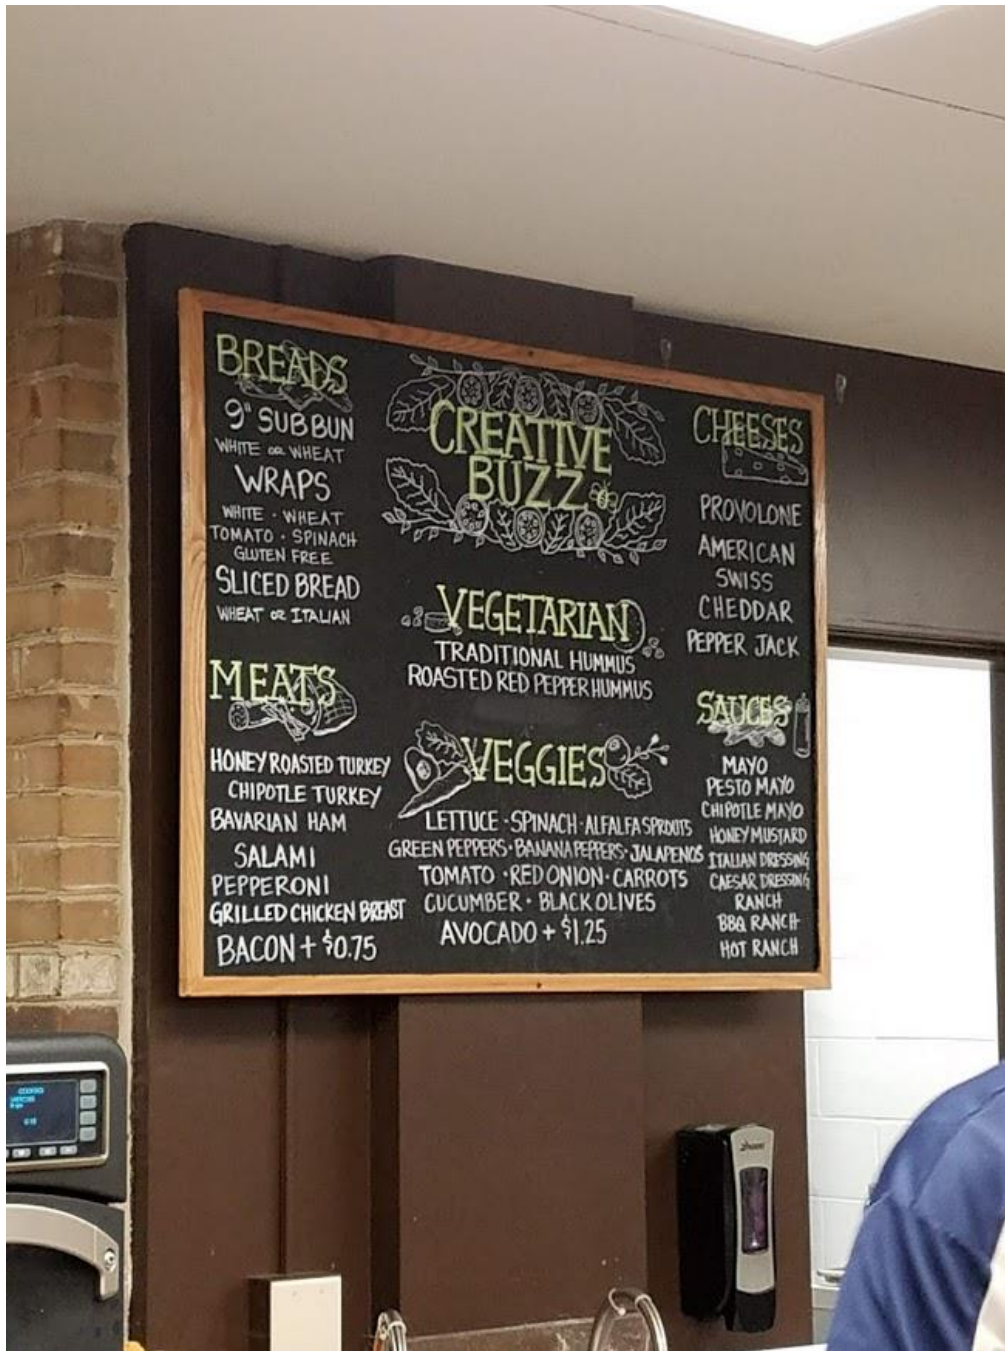 BREADS
9" SUB BUN
WHITE OR WHEAT
WRAPS
WHITE · WHEAT
TOMATO · SPINACH
GLUTEN FREE
SLICED BREAD
WHEAT OR ITALIAN
MEATS
HONEY ROASTED TURKEY
CHIPOTLE TURKEY
BAVARIAN HAM
SALAMI
PEPPERONI
GRILLED CHICKEN BREAST
BACON + $0.75
CREATIVE
BUZZ
VEGETARIAN
TRADITIONAL HUMMUS
ROASTED RED PEPPER HUMMUS
VEGGIES
LETTUCE · SPINACH · ALFALFA SPROUTS
GREEN PEPPERS · BANANA PEPPERS · JALAPENOS
TOMATO · RED ONION · CARROTS
CUCUMBER · BLACK OLIVES
AVOCADO + $1.25
CHEESES
PROVOLONE
AMERICAN
SWISS
CHEDDAR
PEPPER JACK
SAUCES
MAYO
PESTO MAYO
CHIPOTLE MAYO
HONEY MUSTARD
ITALIAN DRESSING
CAESAR DRESSING
RANCH
BBQ RANCH
HOT RANCH